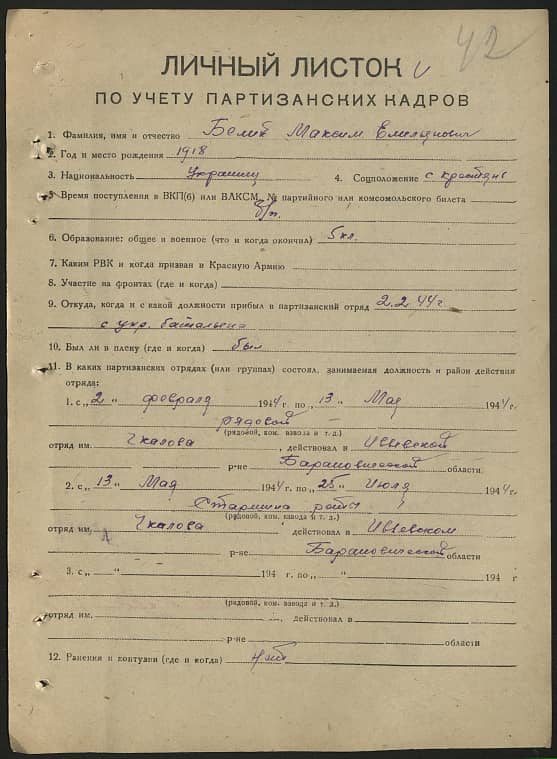 42
ЛИЧНЫЙ ЛИСТОК
ПО УЧЕТУ ПАРТИЗАНСКИХ КАДРОВ
1. Фамилия, имя и отчество Белик Максим Емельянович
2. Год и место рождения 1918
3. Национальность Украинец 4. Соцположение с крестьян
5. Время поступления в ВКП(б) или ВЛКСМ, № партийного или комсомольского билета
б/п.
6. Образование: общее и военное (что и когда окончил) 5 кл.
7. Каким РВК и когда призван в Красную Армию
8. Участие на фронтах (где и когда)
9. Откуда, когда и с какой должности прибыл в партизанский отряд 2.2.44г.
с укр. батальена
10. Был ли в плену (где и когда) был
11. В каких партизанских отрядах (или группах) состоял, занимаемая должность и район действия
отряда:
1. с „2 " февраля 1944 г. по „13 " Мая 1944 г.
рядовой
(рядовой, ком. взвода и т. д.)
отряд им. Чкалова, действовал в Ивьевской
р-не Барановической области.
2. с „13 " Мая 1944 г. по „25 " Июля 1944 г.
Старшина роты
(рядовой, ком. взвода и т. д.)
отряд им. Чкалова действовал в Ивьевском
р-не Барановической области
3. с „ " 194 г. по „ " 194 г
(рядовой, ком. взвода и т. д.)
отряд им. , действовал в
р-не области
12. Ранения и контузии (где и когда) нет